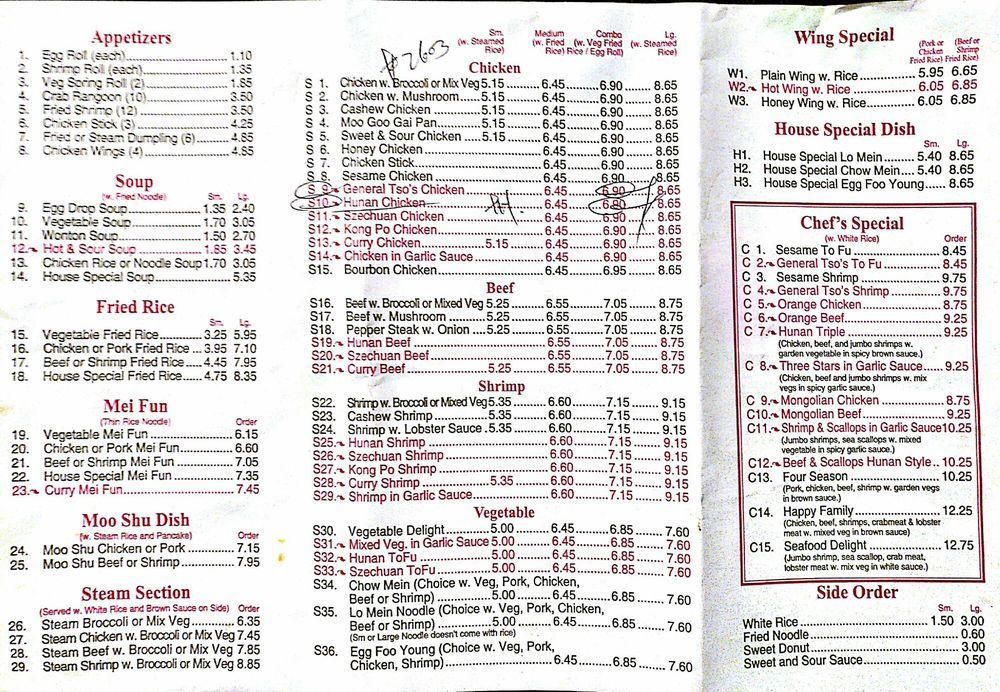 Appetizers
1. Egg Roll (each) 1.10
2. Shrimp Roll (each) 1.35
3. Veg Spring Roll (2) 1.85
4. Crab Rangoon (10) 3.50
5. Fried Shrimp (12) 3.50
6. Chicken Stick (3) 4.25
7. Fried or Steam Dumpling (6) 4.85
8. Chicken Wings (4) 4.85
Soup
(w. Fried Noodle) Sm. Lg.
9. Egg Drop Soup 1.35 2.40
10. Vegetable Soup 1.70 3.05
11. Wonton Soup 1.50 2.70
12. Hot & Sour Soup 1.85 3.45
13. Chicken Rice or Noodle Soup 1.70 3.05
14. House Special Soup 5.35
Fried Rice
Sm. Lg.
15. Vegetable Fried Rice 3.25 5.95
16. Chicken or Pork Fried Rice 3.95 7.10
17. Beef or Shrimp Fried Rice 4.45 7.95
18. House Special Fried Rice 4.75 8.35
Mei Fun
(Thin Rice Noodle) Order
19. Vegetable Mei Fun 6.15
20. Chicken or Pork Mei Fun 6.60
21. Beef or Shrimp Mei Fun 7.05
22. House Special Mei Fun 7.35
23. Curry Mei Fun 7.45
Moo Shu Dish
(w. Steam Rice and Pancake) Order
24. Moo Shu Chicken or Pork 7.15
25. Moo Shu Beef or Shrimp 7.95
Steam Section
(Served w. White Rice and Brown Sauce on Side) Order
26. Steam Broccoli or Mix Veg 6.35
27. Steam Chicken w. Broccoli or Mix Veg 7.45
28. Steam Beef w. Broccoli or Mix Veg 7.85
29. Steam Shrimp w. Broccoli or Mix Veg 8.85
Sm. Medium Combo Lg.
(w. Steamed (w. Fried (w. Veg Fried (w. Steamed
Rice) Rice) Rice / Egg Roll) Rice)
Chicken
S 1. Chicken w. Broccoli or Mix Veg 5.15 6.45 6.90 8.65
S 2. Chicken w. Mushroom 5.15 6.45 6.90 8.65
S 3. Cashew Chicken 5.15 6.45 6.90 8.65
S 4. Moo Goo Gai Pan 5.15 6.45 6.90 8.65
S 5. Sweet & Sour Chicken 5.15 6.45 6.90 8.65
S 6. Honey Chicken 6.45 6.90 8.65
S 7. Chicken Stick 6.45 6.90 8.65
S 8. Sesame Chicken 6.45 6.90 8.65
S 9. General Tso's Chicken 6.45 6.90 8.65
S10. Hunan Chicken 6.45 6.90 8.65
S11. Szechuan Chicken 6.45 6.90 8.65
S12. Kong Po Chicken 6.45 6.90 8.65
S13. Curry Chicken 5.15 6.45 6.90 8.65
S14. Chicken in Garlic Sauce 6.45 6.90 8.65
S15. Bourbon Chicken 6.45 6.95 8.65
Beef
S16. Beef w. Broccoli or Mixed Veg 5.25 6.55 7.05 8.75
S17. Beef w. Mushroom 5.25 6.55 7.05 8.75
S18. Pepper Steak w. Onion 5.25 6.55 7.05 8.75
S19. Hunan Beef 6.55 7.05 8.75
S20. Szechuan Beef 6.55 7.05 8.75
S21. Curry Beef 5.25 6.55 7.05 8.75
Shrimp
S22. Shrimp w. Broccoli or Mixed Veg 5.35 6.60 7.15 9.15
S23. Cashew Shrimp 5.35 6.60 7.15 9.15
S24. Shrimp w. Lobster Sauce 5.35 6.60 7.15 9.15
S25. Hunan Shrimp 6.60 7.15 9.15
S26. Szechuan Shrimp 6.60 7.15 9.15
S27. Kong Po Shrimp 6.60 7.15 9.15
S28. Curry Shrimp 5.35 6.60 7.15 9.15
S29. Shrimp in Garlic Sauce 6.60 7.15 9.15
Vegetable
S30. Vegetable Delight 5.00 6.45 6.85 7.60
S31. Mixed Veg. in Garlic Sauce 5.00 6.45 6.85 7.60
S32. Hunan ToFu 5.00 6.45 6.85 7.60
S33. Szechuan ToFu 5.00 6.45 6.85 7.60
S34. Chow Mein (Choice w. Veg, Pork, Chicken,
Beef or Shrimp) 5.00 6.45 6.85 7.60
S35. Lo Mein Noodle (Choice w. Veg, Pork, Chicken,
Beef or Shrimp) 5.00 6.45 6.85 7.60
(Sm or Large Noodle doesn't come with rice)
S36. Egg Foo Young (Choice w. Veg, Pork,
Chicken, Shrimp) 6.45 6.85 7.60
Wing Special
(Pork or (Beef or
Chicken Shrimp
Fried Rice) Fried Rice)
W1. Plain Wing w. Rice 5.95 6.65
W2. Hot Wing w. Rice 6.05 6.85
W3. Honey Wing w. Rice 6.05 6.85
House Special Dish
Sm. Lg.
H1. House Special Lo Mein 5.40 8.65
H2. House Special Chow Mein 5.40 8.65
H3. House Special Egg Foo Young 8.65
Chef's Special
(w. White Rice) Order
C 1. Sesame To Fu 8.45
C 2. General Tso's To Fu 8.45
C 3. Sesame Shrimp 9.75
C 4. General Tso's Shrimp 9.75
C 5. Orange Chicken 8.75
C 6. Orange Beef 9.25
C 7. Hunan Triple 9.25
(Chicken, beef, and jumbo shrimps w.
garden vegetable in spicy brown sauce.)
C 8. Three Stars in Garlic Sauce 9.25
(Chicken, beef and jumbo shrimps w. mix
vegs in spicy garlic sauce.)
C 9. Mongolian Chicken 8.75
C10. Mongolian Beef 9.25
C11. Shrimp & Scallops in Garlic Sauce 10.25
(Jumbo shrimps, sea scallops w. mixed
vegetable in spicy garlic sauce.)
C12. Beef & Scallops Hunan Style 10.25
C13. Four Season 10.25
(Pork, chicken, beef, shrimp w. garden vegs
in brown sauce.)
C14. Happy Family 12.25
(Chicken, beef, shrimps, crabmeat & lobster
meat w. mixed veg in brown sauce)
C15. Seafood Delight 12.75
(Jumbo shrimp, sea scallop, crab meat,
lobster meat w. mix veg in white sauce.)
Side Order
Sm. Lg.
White Rice 1.50 3.00
Fried Noodle 0.60
Sweet Donut 3.00
Sweet and Sour Sauce 0.50